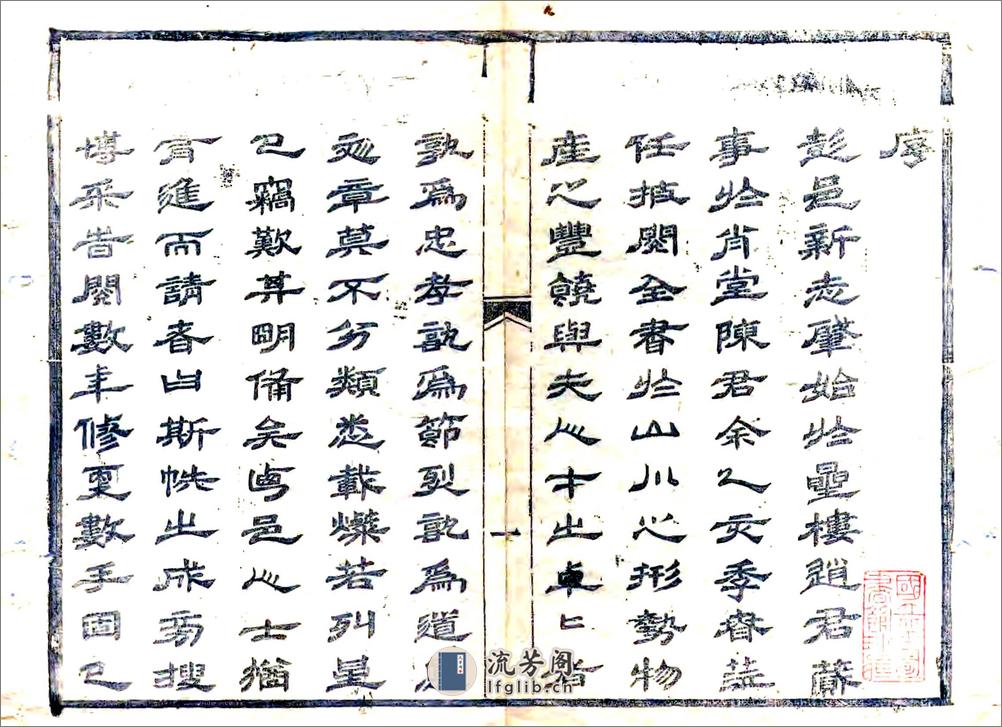 序
彭邑新志肇始於星樓趙君蕆
事於肖堂陳君余乙亥季春蒞
任披閱全書於山川之形勢物
產之豐饒與夫人才之卓匕者
一
孰為忠孝孰為節烈孰為道
章莫不分類悉載燦若列星
已竊歎其明備矣邑人士猶
有進而請者曰斯帙之成旁搜
博采旹閱數年修更數手固已
流芳阁
lfglib.cn